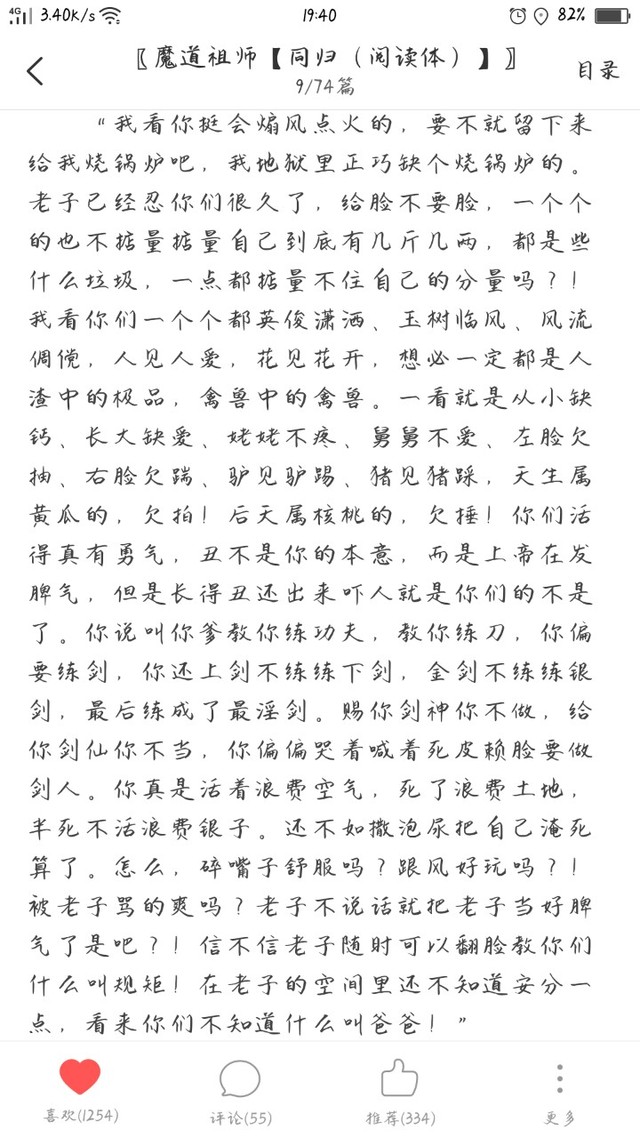 4G 3.40K/s 19:40 82%
〖魔道祖师【同归（阅读体）】〗
9/74篇
目录
“我看你挺会煽风点火的，要不就留下来
给我烧锅炉吧，我地狱里正巧缺个烧锅炉的。
老子已经忍你们很久了，给脸不要脸，一个个
的也不掂量掂量自己到底有几斤几两，都是些
什么垃圾，一点都掂量不住自己的分量吗？！
我看你们一个个都英俊潇洒、玉树临风、风流
倜傥，人见人爱，花见花开，想必一定都是人
渣中的极品，禽兽中的禽兽。一看就是从小缺
钙、长大缺爱、姥姥不疼、舅舅不爱、左脸欠
抽、右脸欠踹、驴见驴踢、猪见猪踩，天生属
黄瓜的，欠拍！后天属核桃的，欠捶！你们活
得真有勇气，丑不是你的本意，而是上帝在发
脾气，但是长得丑还出来吓人就是你们的不是
了。你说叫你爹教你练功夫，教你练刀，你偏
要练剑，你还上剑不练练下剑，金剑不练练银
剑，最后练成了最淫剑。赐你剑神你不做，给
你剑仙你不当，你偏偏哭着喊着死皮赖脸要做
剑人。你真是活着浪费空气，死了浪费土地，
半死不活浪费银子。还不如撒泡尿把自己淹死
算了。怎么，碎嘴子舒服吗？跟风好玩吗？！
被老子骂的爽吗？老子不说话就把老子当好脾
气了是吧？！信不信老子随时可以翻脸教你们
什么叫规矩！在老子的空间里还不知道安分一
点，看来你们不知道什么叫爸爸！”
喜欢(1254) 评论(55) 推荐(334) 更多